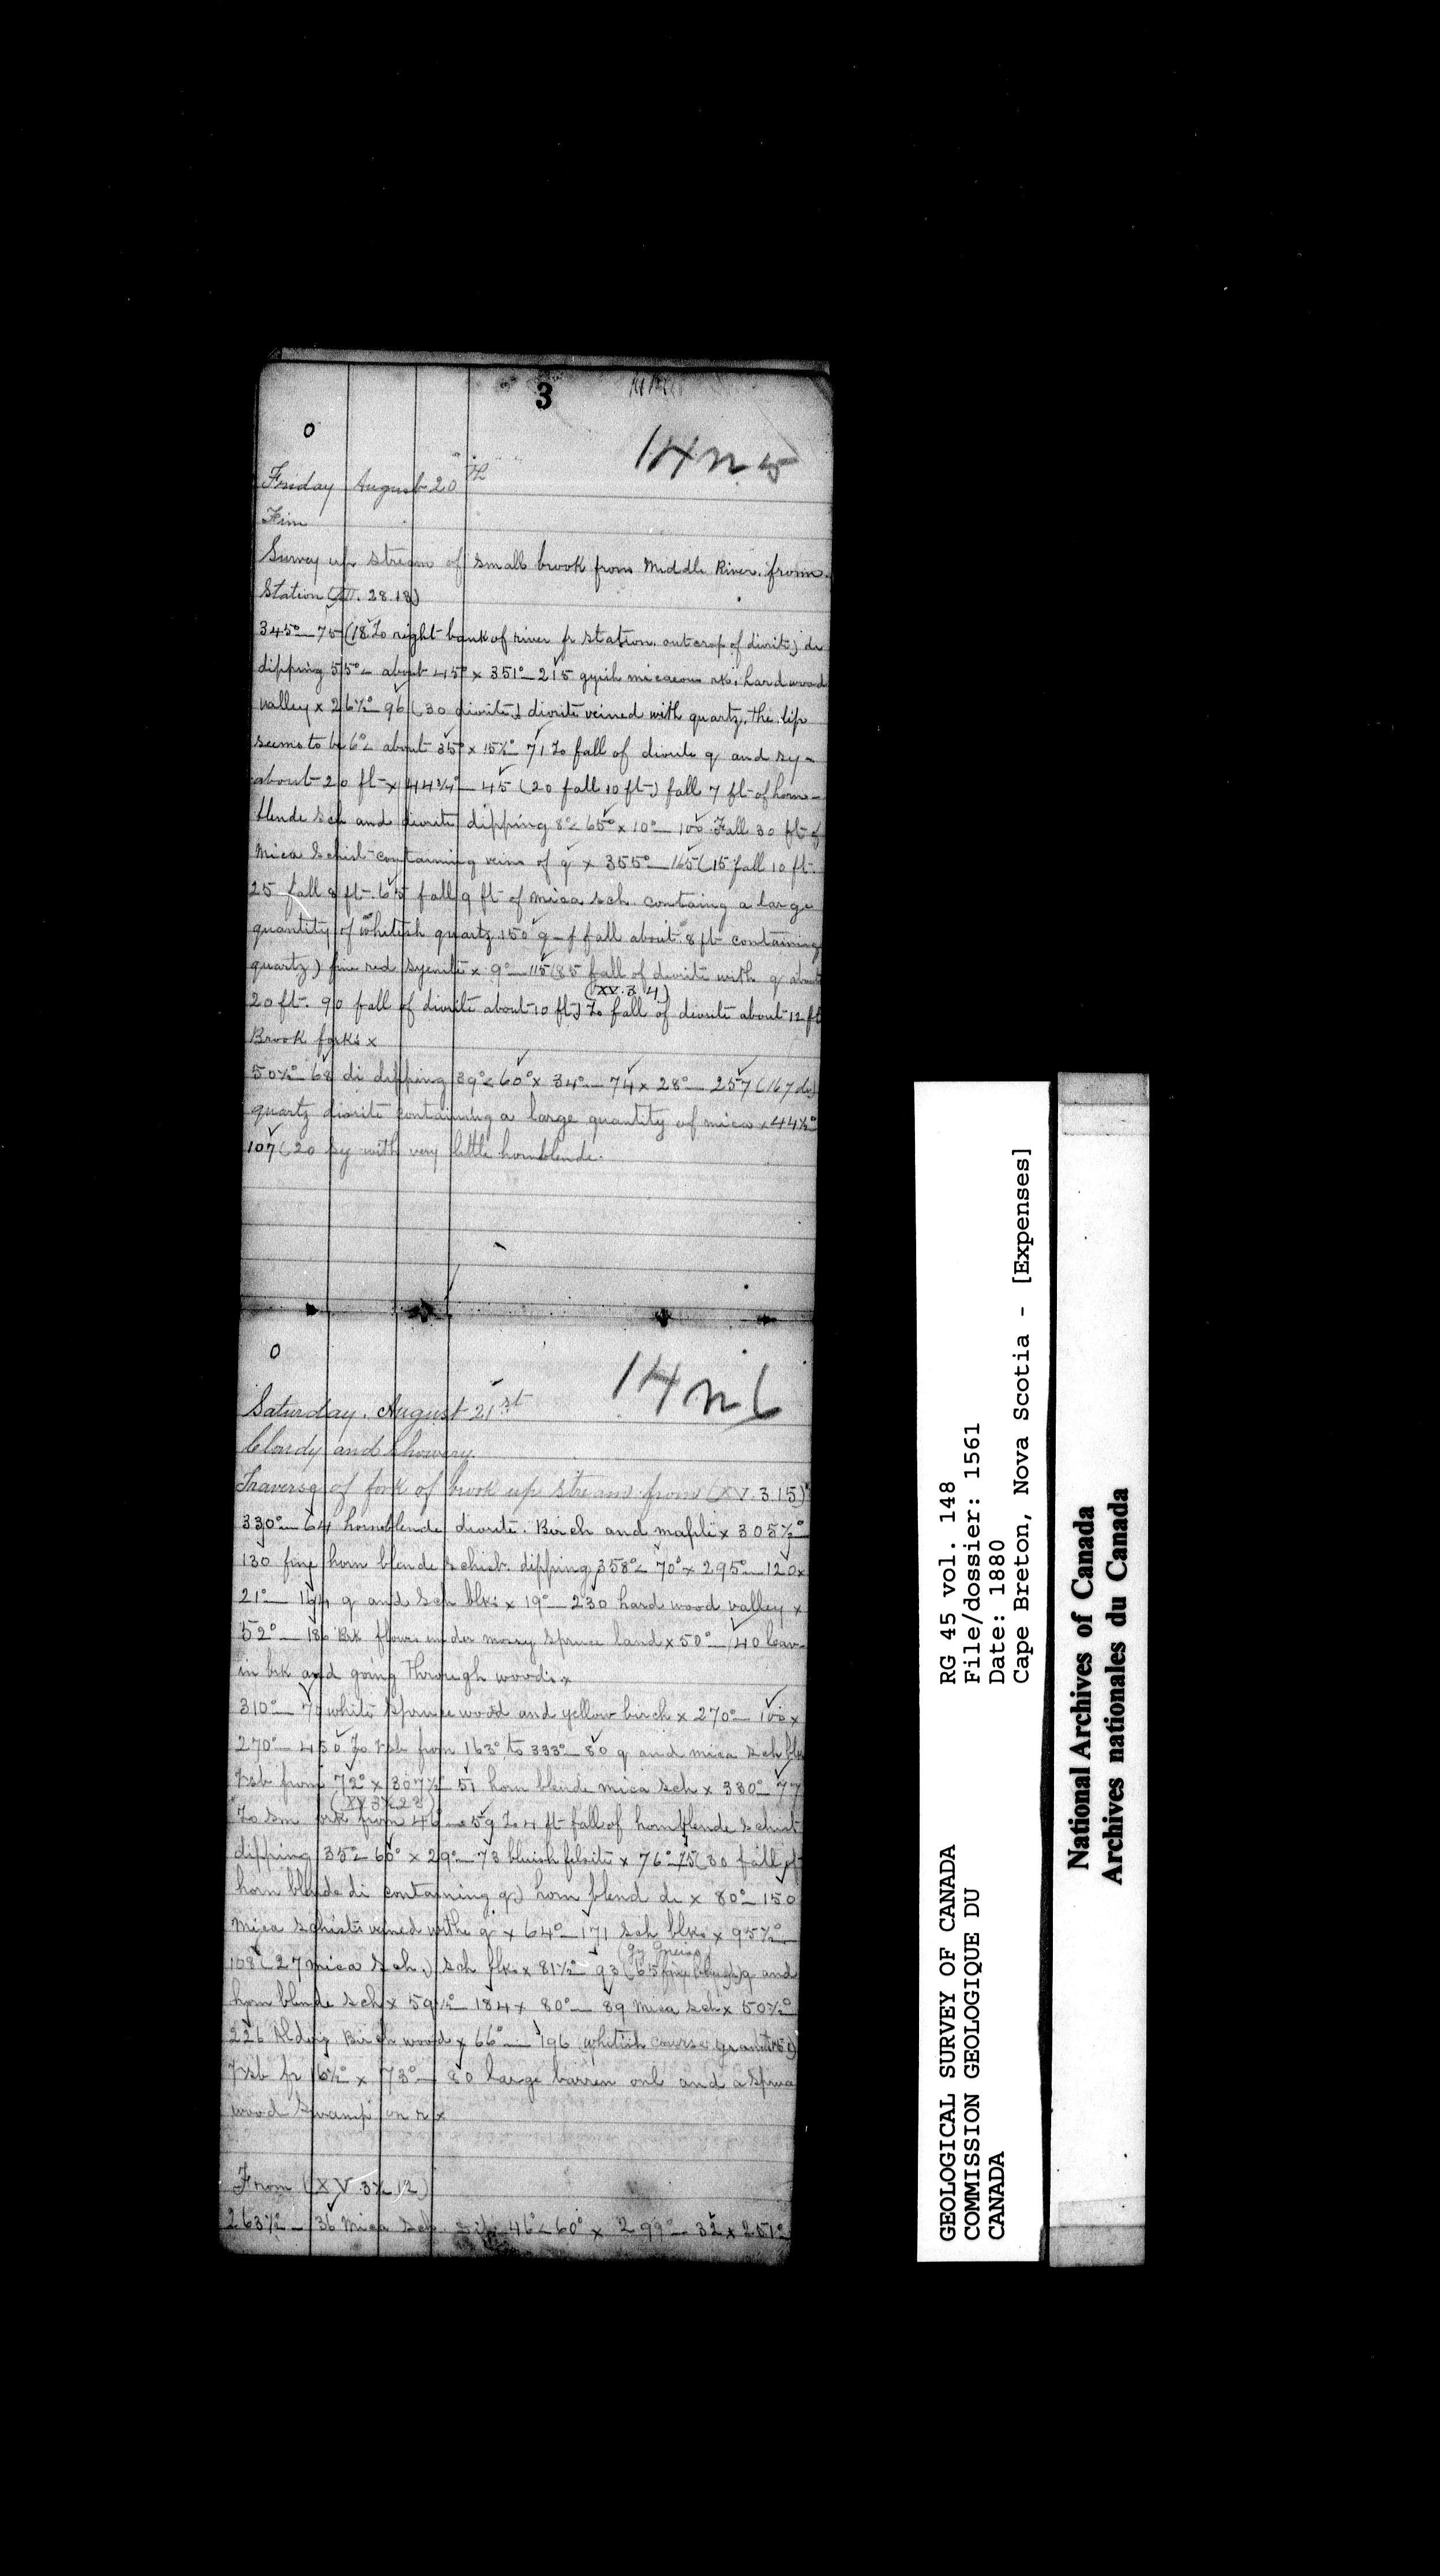 3
14 n. 5
Friday August 20th
Fine
Survey up stream of small brook from Middle River. from
Station (III. 28.18)
345°—75 (18 To right bank of river fr station. outcrop of diorite) di
dipping 55°∠ about 45° x 351°—215 gyish micaeous rk. hard wood
valley x 26½°—96 (30 diorite) diorite veined with quartz, the dip
seems to be 6°∠ about 35° x 15½°—71 To fall of diorite q and sy-
about 20 ft x 44¾°—45 (20 fall 10 ft) fall 7 ft of horn-
blende sch and diorite dipping 8°∠ 65° x 10°—100 Fall 30 ft of
Mica Schist containing veins of q x 355°—165 (15 fall 10 ft.
25 fall 8 ft. 65 fall 9 ft of mica sch containg a large
quantity of whitish quartz 150 q-f fall about 8 ft containing
quartz) fine red syenite x 9°—115 (85 fall of diorite with q about
(XV. 3. 4)
20 ft. 90 fall of diorite about 10 ft) To fall of diorite about 12 ft
Brook forks x
50½°—68 di dipping 39°∠60° x 34°—74 x 28°—257 (167 di)
quartz diorite containing a large quantity of mica x 44½°
107 (20 sy with very little hornblende.
14 n 6
Saturday. August 21st
Cloudy and showery
Traverse of fork of brook up stream from (XV. 3.15)
330°—64 hornblende diorite. Birch and maple x 305½°—
130 fine horn blende schist. dipping 358°∠ 70° x 295°—120 x
21°—164 q and sch blks x 19°—230 hard wood valley x
52°—186 Brk flows under mossy spruce land x 50°—140 leav-
in brk and going through woods x
310°—70 white spruce wood and yellow birch x 270°—100 x
270°—450 To rsb from 163° to 333°—80 q and mica sch blks
rsb from 72° x 307½°—51 horn blende mica sch x 330°—77
(XV 3½ 23)
To sm brk from 46°—59 To 4 ft fall of hornblende schist
dipping 35°∠60° x 29°—73 bluish felsite x 76°—75 (30 fall of
horn blende di containing q) horn blend di x 80°—150
mica schists veined withe q x 64°—171 sch blks x 95½°—
(gy Gneiss)
108 (27 mica sch.) sch blks x 81½°—93 (65 q and
horn blende sch x 59½°—184 x 80°—89 mica sch x 50½°
226 Aldery Birch wood x 66°—196 whitish course granite
rsb fr 16½° x 73°—80 large barren onl and a spruce
wood swamp on r x
From (XV. 3½ 12)
263½°—36 Mica sch dip 46°∠60° x 299°—32 x 251°
RG 45 vol. 148
File/dossier: 1561
Date: 1880
Cape Breton, Nova Scotia - [Expenses]
GEOLOGICAL SURVEY OF CANADA
COMMISSION GEOLOGIQUE DU
CANADA
National Archives of Canada
Archives nationales du Canada